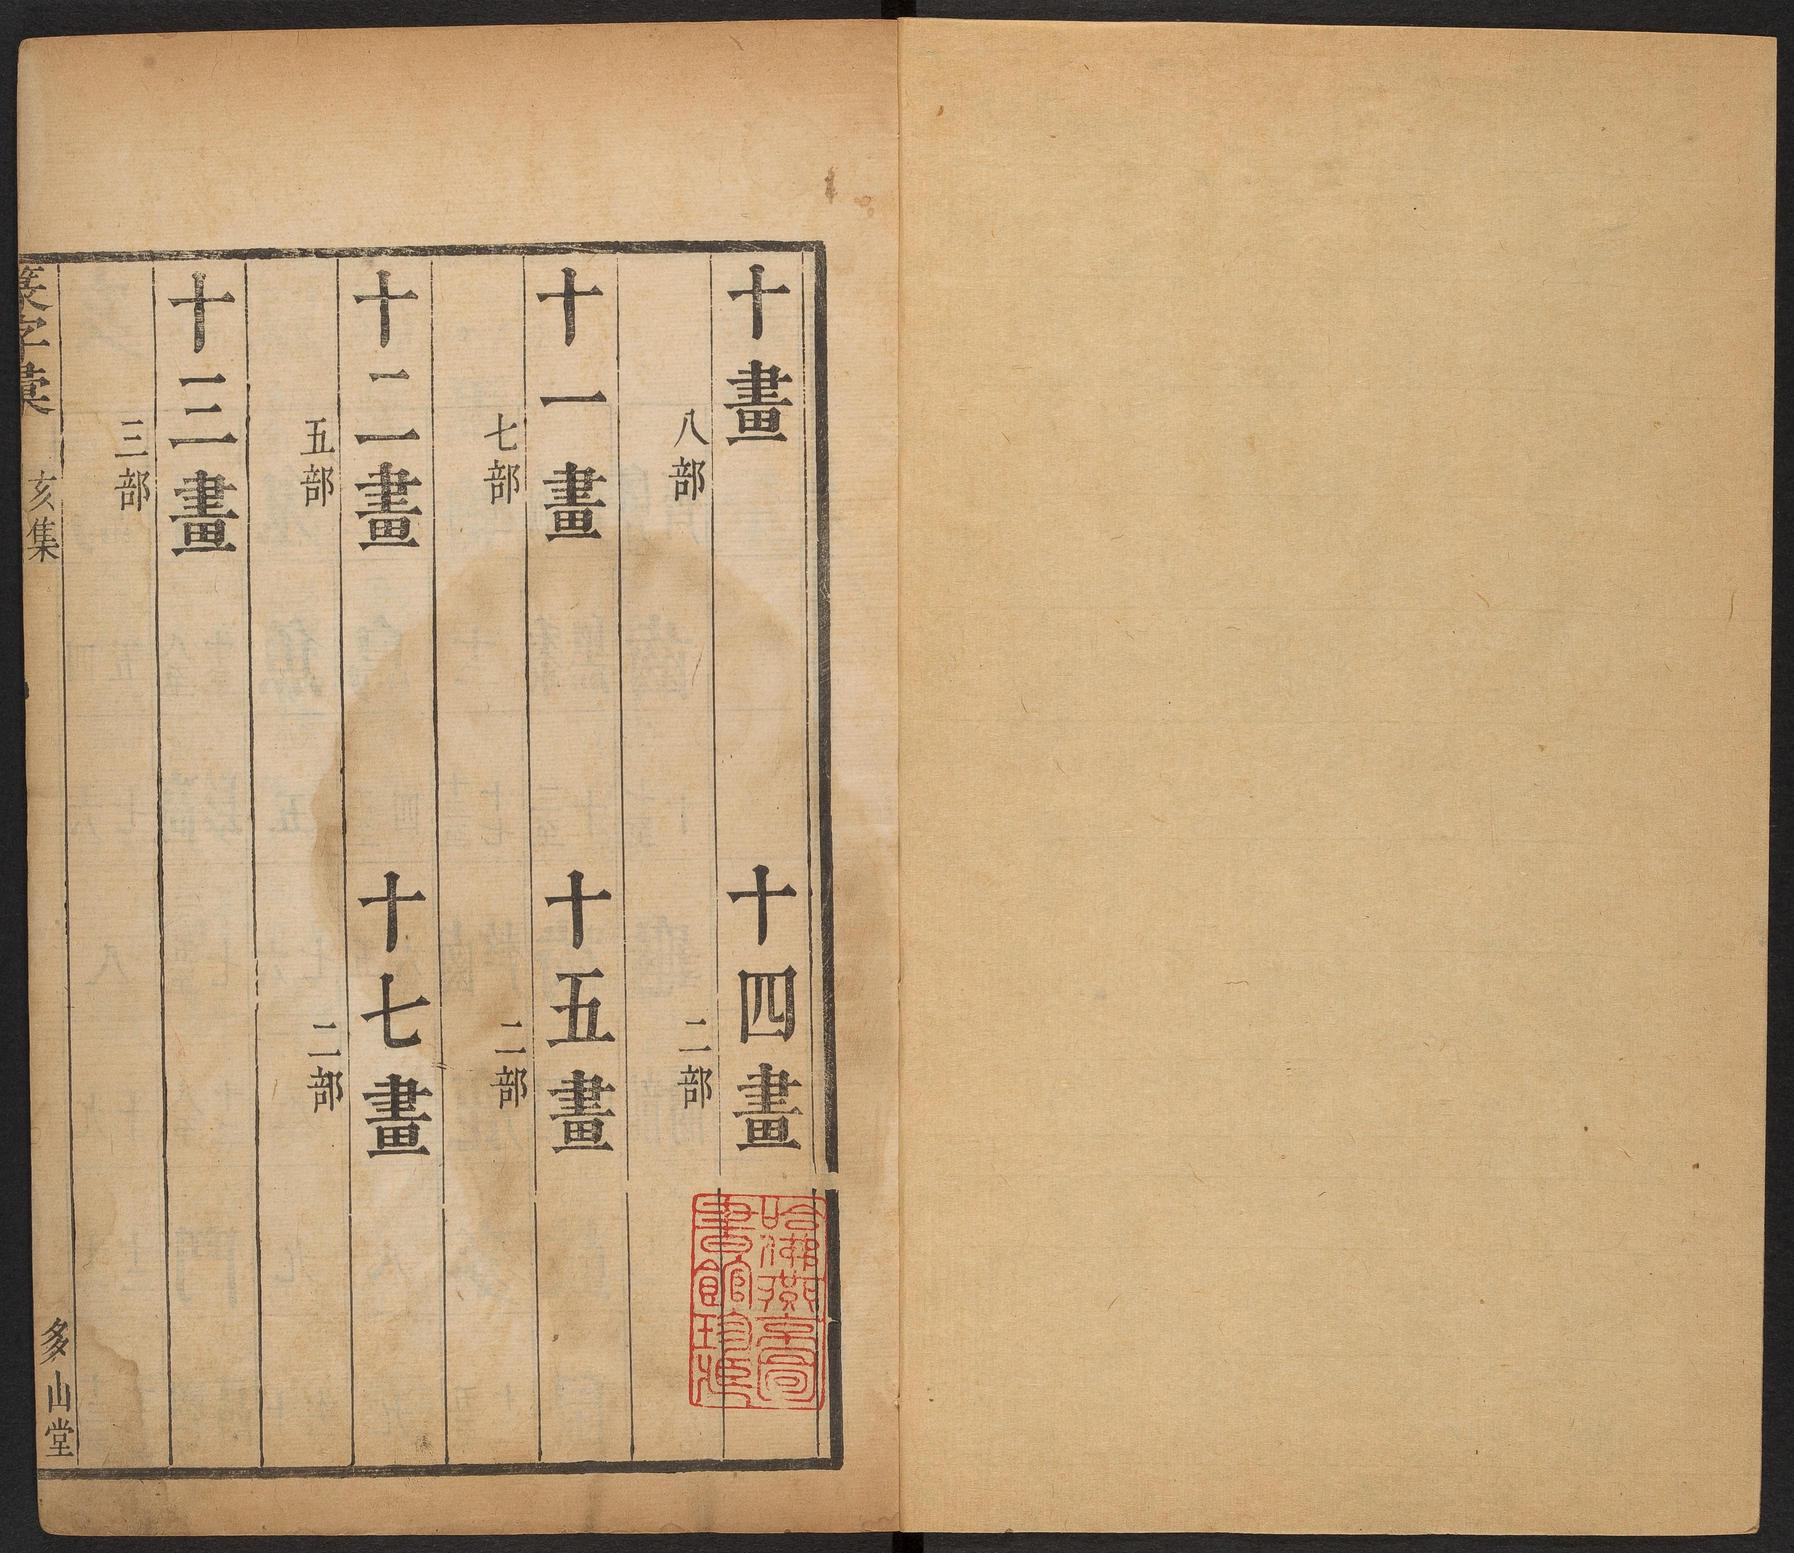 十畫
八部
十一畫
七部
十二畫
五部
十三畫
三部
十四畫
二部
十五畫
二部
十七畫
二部
篆字彙
亥集
多山堂
哈佛燕京圖
書館珍藏